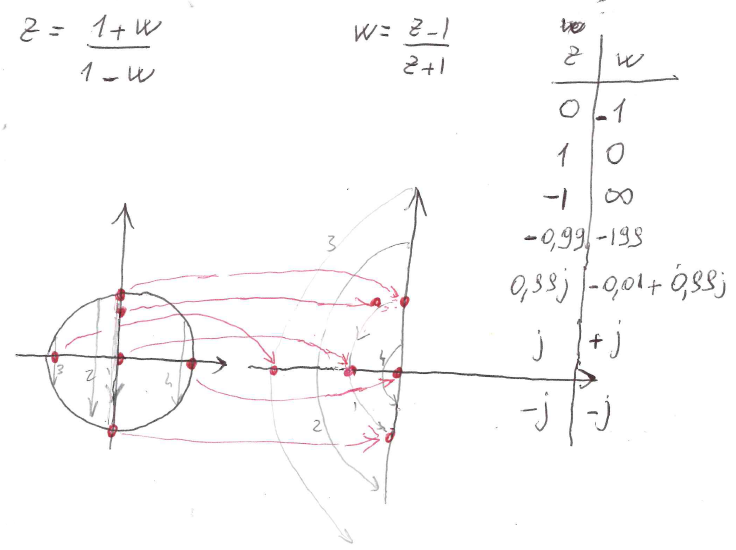 z = 1+w / 1-w
w = z-1 / z+1
z | w
0 | -1
1 | 0
-1 | ∞
-0,99 | -199
0,99j | -0,01 + 0,99j
j | +j
-j | -j
3
2
1
4
3
2
1
4